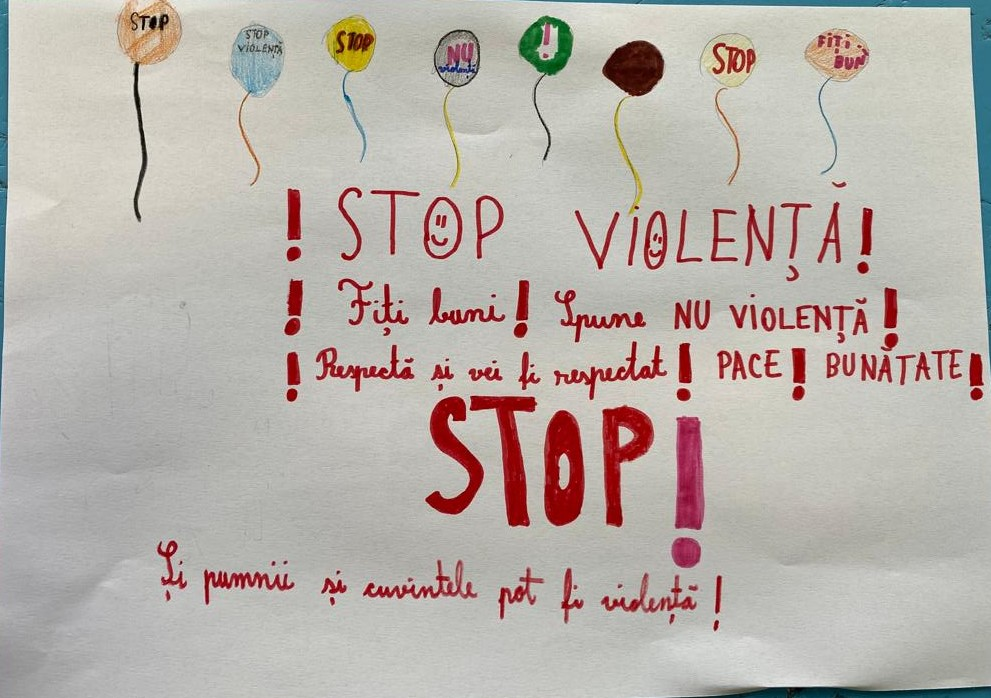 STOP
STOP
VIOLENȚĂ
STOP
NU
violență
!
STOP
FIȚI
BUNI
! STOP VIOLENȚĂ!
! Fiți buni! Spune NU VIOLENȚĂ!
! Respectă și vei fi respectat! PACE! BUNĂTATE!
STOP!
Și pumnii și cuvintele pot fi violență!